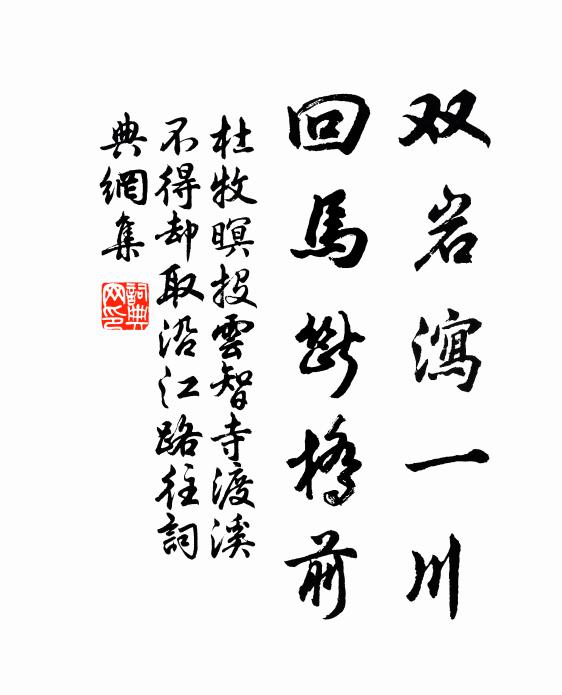 双岩瀉一川
回馬斷橋前
杜牧暝投雲智寺渡溪
不得却取沿江路往詞
典網集
詞典网印